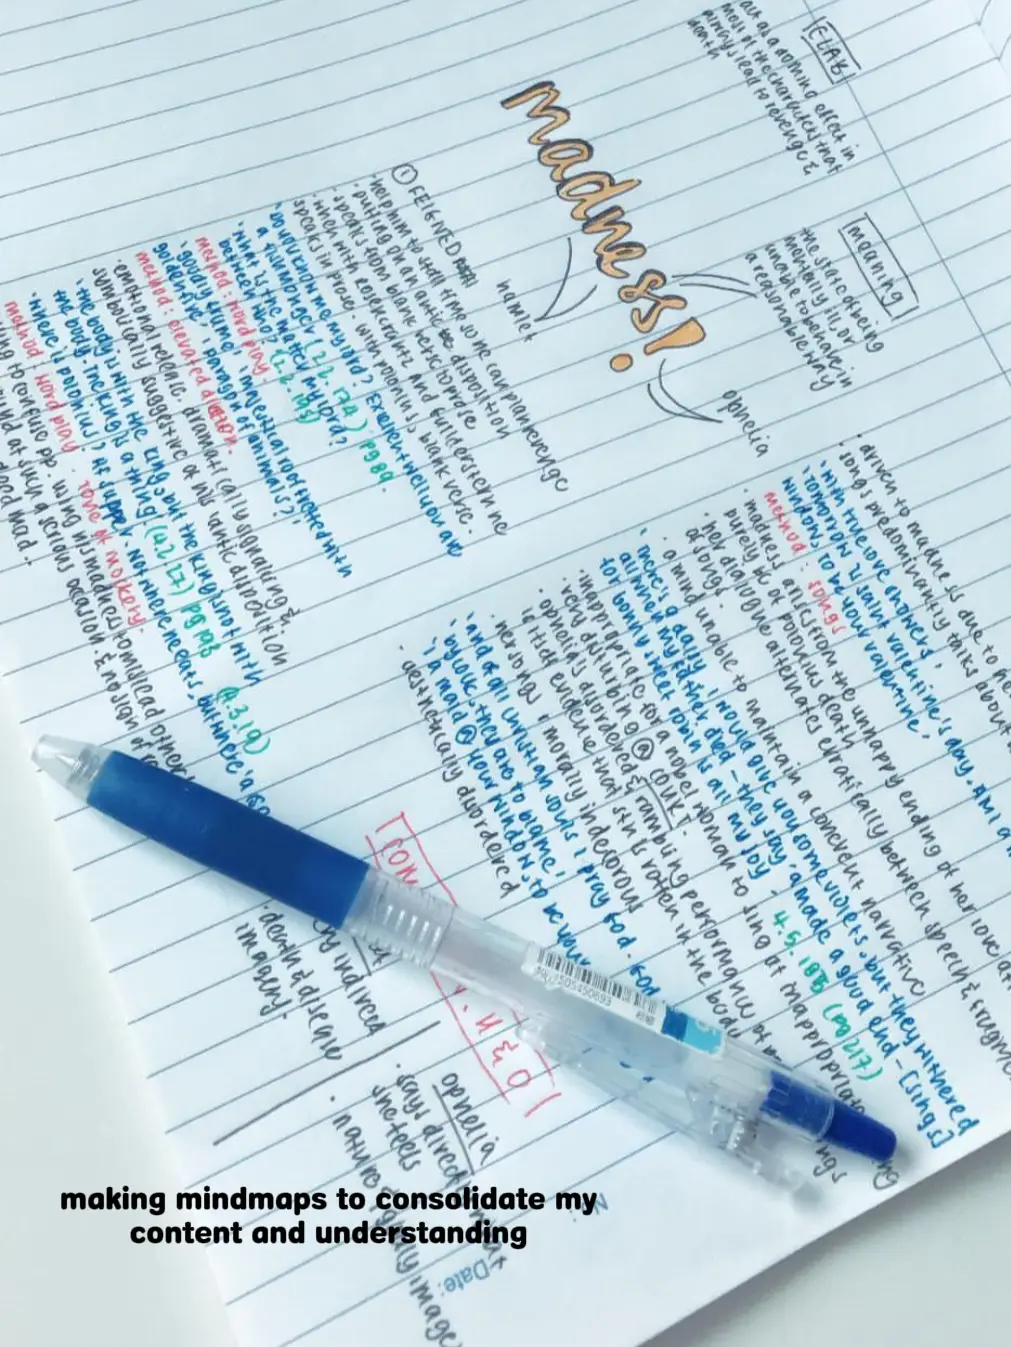 [ELAB]
act as a domino effect in
most of the characters that
lead to revenge &
death
madness!
[meaning]
the state of being
mentally ill, or
unable to behave in
a reasonable way
hamlet
① FEIGNED
help him to stall time so he can plan revenge
· putting on an antic disposition
· speaks from blank verse to prose
· when with rosencrantz and guildenstern he
speaks in prose. with polonius, blank verse.
'Do you know me my lord? Excellent well you are
a fishmonger' (2.2.174) pg 89
'what is the matter my lord?
between who?' (2.2.195)
method: word play.
'goodly frame' 'majestical roof fretted with
golden fire' 'paragon of animals?'
method: elevated diction.
· emotional release. dramatically signaling &
symbolically suggestive of his 'antic disposition
'the body is with the king, but the king is not with
the body. the king is a thing' (4.2.27) pg 193
'where is polonius? At supper. Not where he eats, but where 'a is
(4.3.19)
method: word play. tone of mockery.
to confuse pp. using his madness to mislead others
at such a serious occasion & no sign of
mad.
ophelia
· driven to madness due to he
· songs predominantly talks about
'with true love showers'
'tomorrow is saint valentine's day. Am I a
window, to be your valentine'
method: songs
· madness arises from the unhappy ending of her love at
purely bc of polonius death
· her dialogue alternates erratically between speech & fragme
of songs.
· a mind unable to maintain a coherent narrative
'there's a daisy. I would give you some violets, but they withered
all when my father died – they say, 'a made a good end – [sings]
for bonny sweet robin is all my joy' – 4.5.185 (pg 217)
· inappropriate for a nobel woman to sing at inappropriate
very disturbing @ COURT.
· ophelia's disordered & rambling performance of
is itself evidence that sth is rotten in the body
· her songs, morally indecorous
· aesthetically disordered
'and of all christian souls I pray God. God
'by cock, they are to blame'
'a maid @ your window, to be your
H & O
indirect
· death & disease
imagery.
ophelia
· says direct what
she feels
· nature imagery
N
Date:
9902505450693
making mindmaps to consolidate my
content and understanding